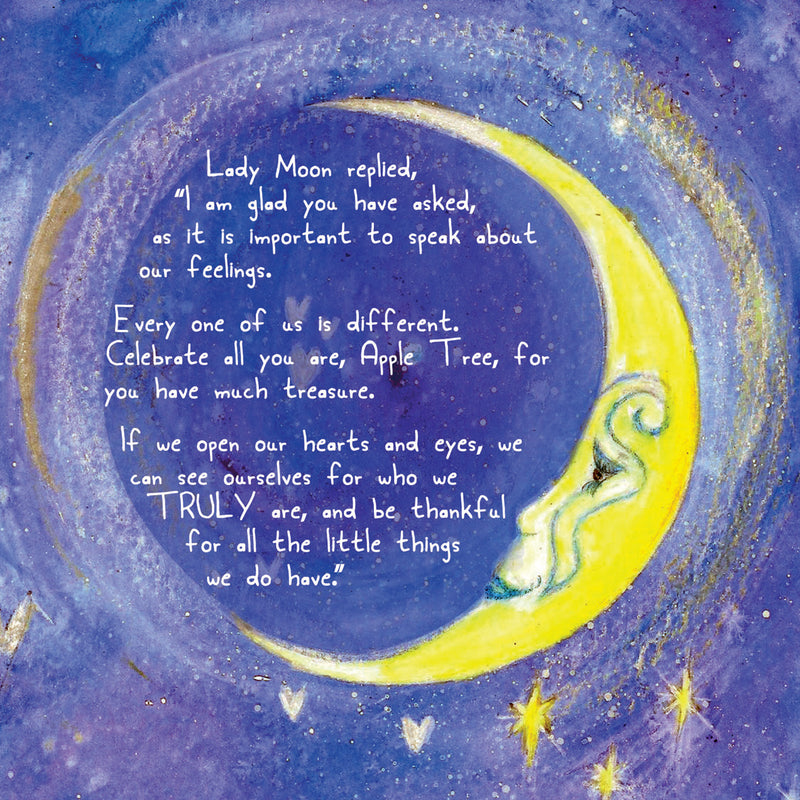 Lady Moon replied,
"I am glad you have asked,
as it is important to speak about
our feelings.
Every one of us is different.
Celebrate all you are, Apple Tree, for
you have much treasure.
If we open our hearts and eyes, we
can see ourselves for who we
TRULY are, and be thankful
for all the little things
we do have."